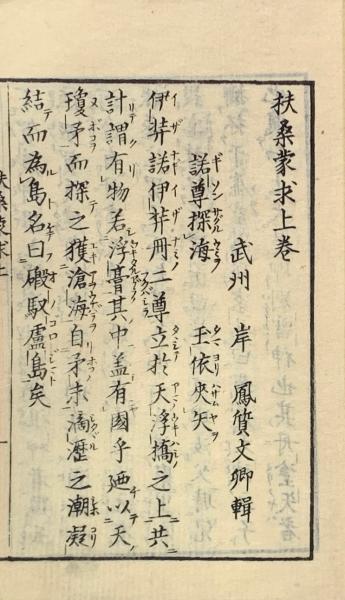 扶桑蒙求上巻
武州 岸 鳳質文卿輯
諾尊探海 玉依夾矢
伊弉諾伊弉冊二尊立於天浮橋之上共
計謂有物若浮膏其中盖有國乎廼以天
瓊矛而探之獲滄海自矛末滴瀝之潮凝
結而為島名曰磤馭盧島矣